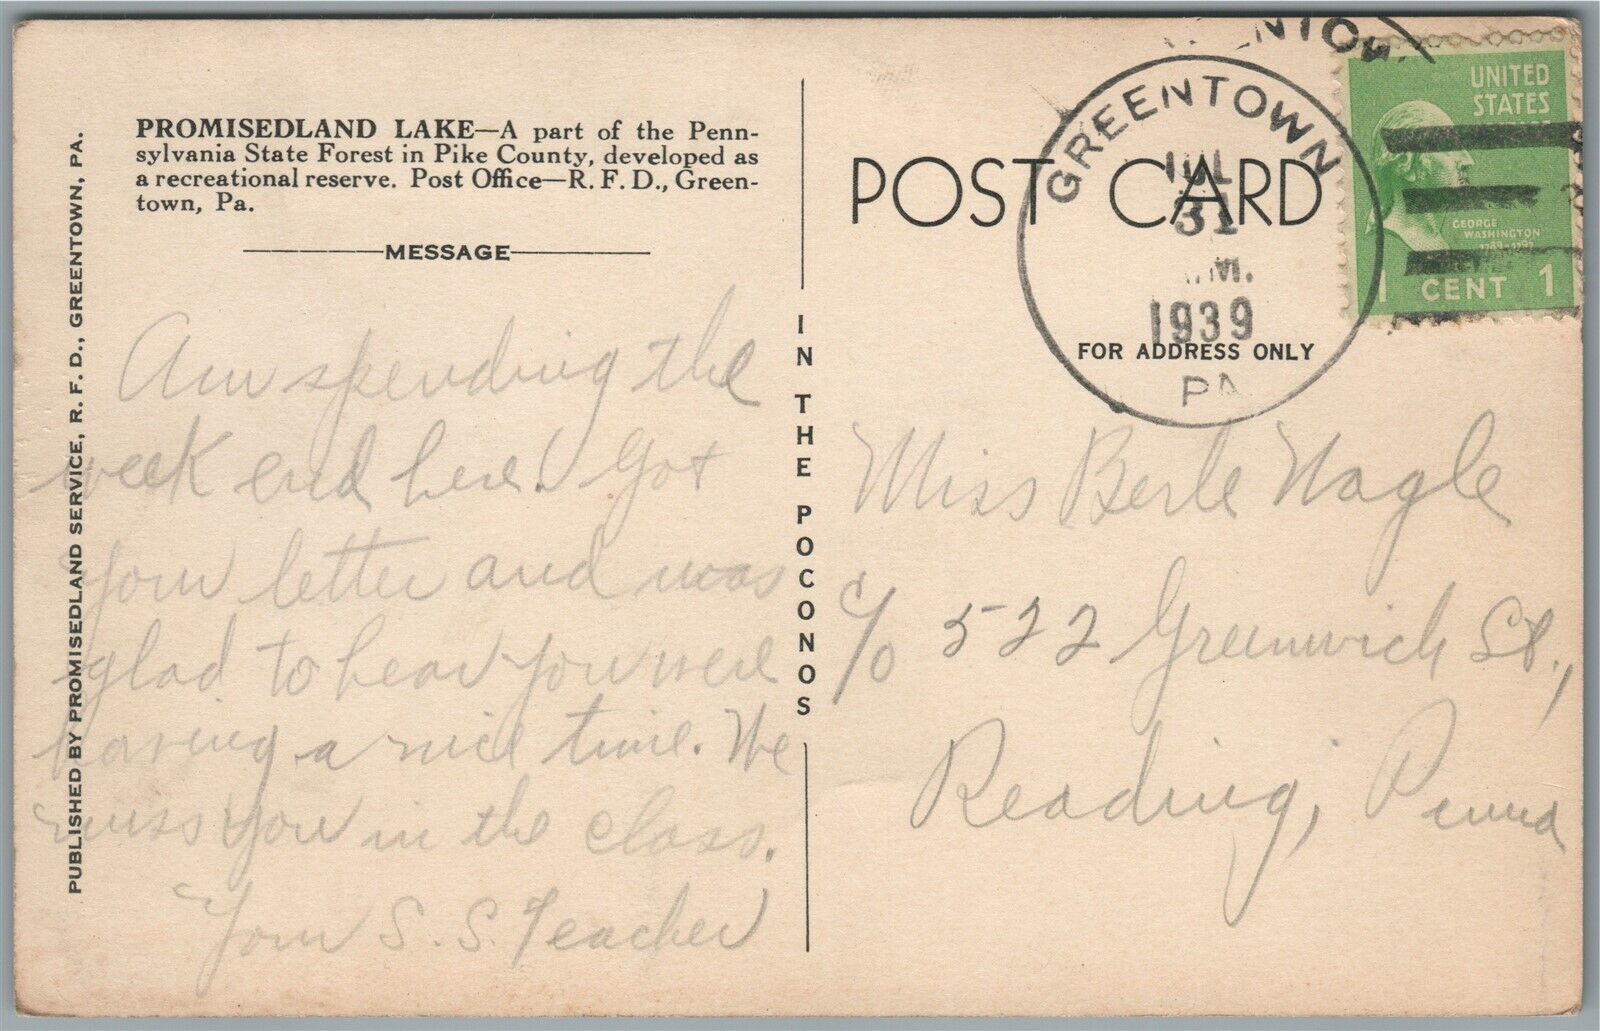 PROMISEDLAND LAKE—A part of the Penn-
sylvania State Forest in Pike County, developed as
a recreational reserve. Post Office—R. F. D., Green-
town, Pa.
MESSAGE
Am spending the
week end here. Got
your letter and was
glad to hear you were
having a nice time. We
miss you in the class.
Your S. S. Teacher
PUBLISHED BY PROMISEDLAND SERVICE, R. F. D., GREENTOWN, PA.
IN THE POCONOS
POST CARD
FOR ADDRESS ONLY
GREENTOWN
JUL
31
M.
1939
PA
UNITED
STATES
GEORGE
WASHINGTON
1789-1797
1 CENT 1
Miss Berle Nagle
c/o 522 Greenwich St.,
Reading, Penna